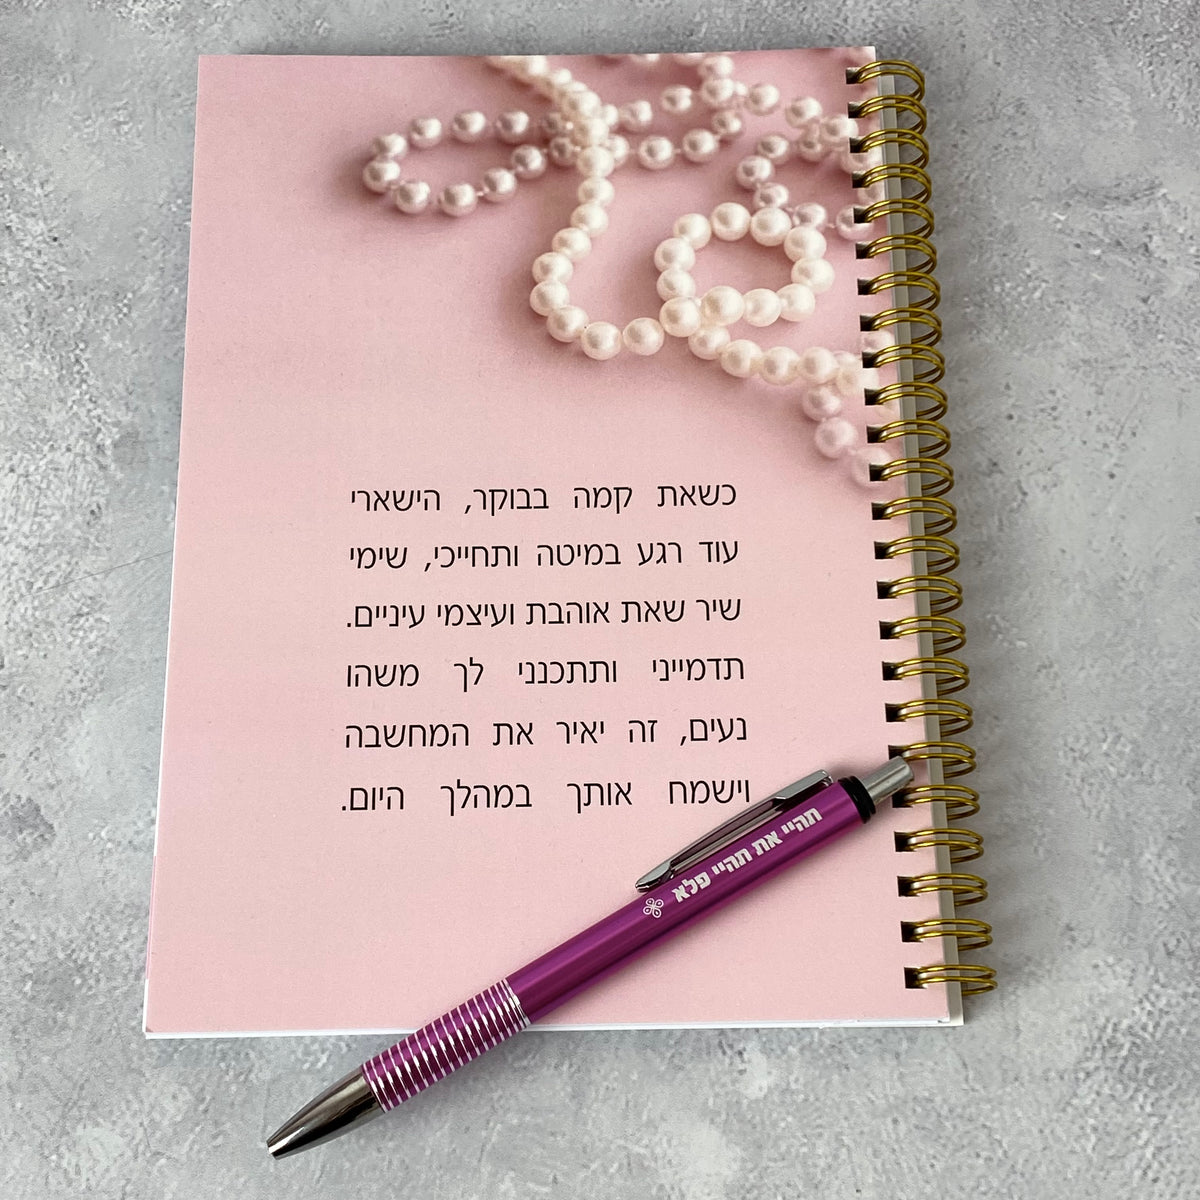 כשאת קמה בבוקר, הישארי
עוד רגע במיטה ותחייכי, שימי
שיר שאת אוהבת ועיצמי עיניים.
תדמייני ותתכנני לך משהו
נעים, זה יאיר את המחשבה
וישמח אותך במהלך היום.
תהיי את תהיי פלא